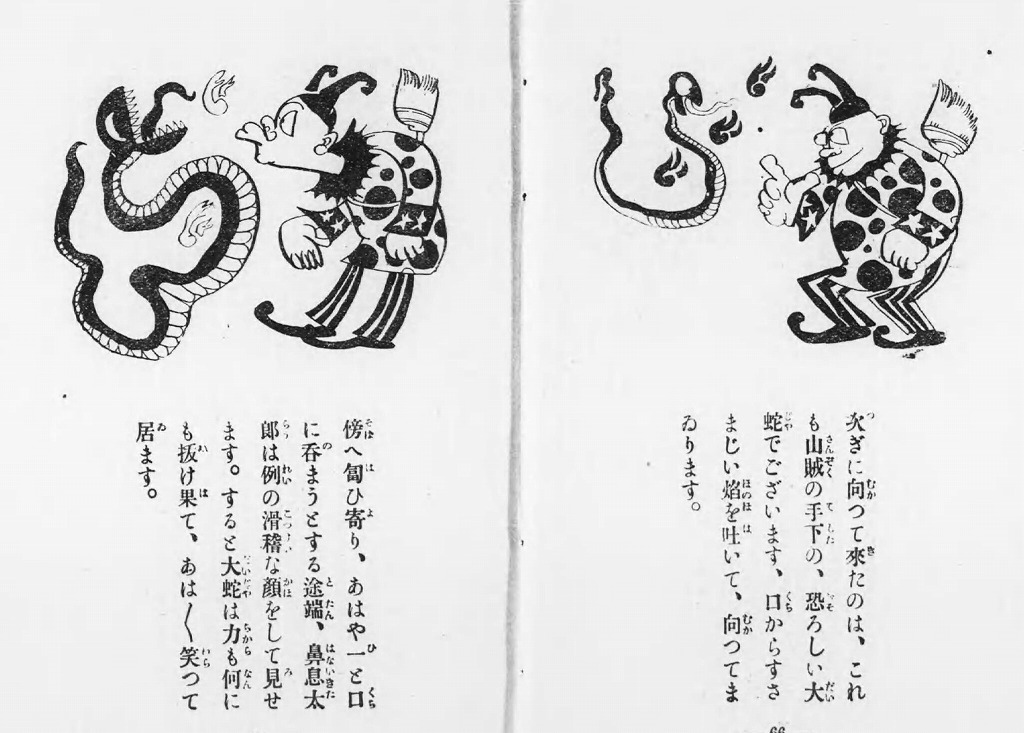 次ぎに向つて來たのは、これ
も山賊の手下の、恐ろしい大
蛇でございます、口からすさ
まじい焰を吐いて、向つてま
ゐります。
66
傍へ匐ひ寄り、あはや一と口
に呑まうとする途端、鼻息太
郎は例の滑稽な顔をして見せ
ます。すると大蛇は力も何に
も抜け果て、あは〳〵笑つて
居ます。